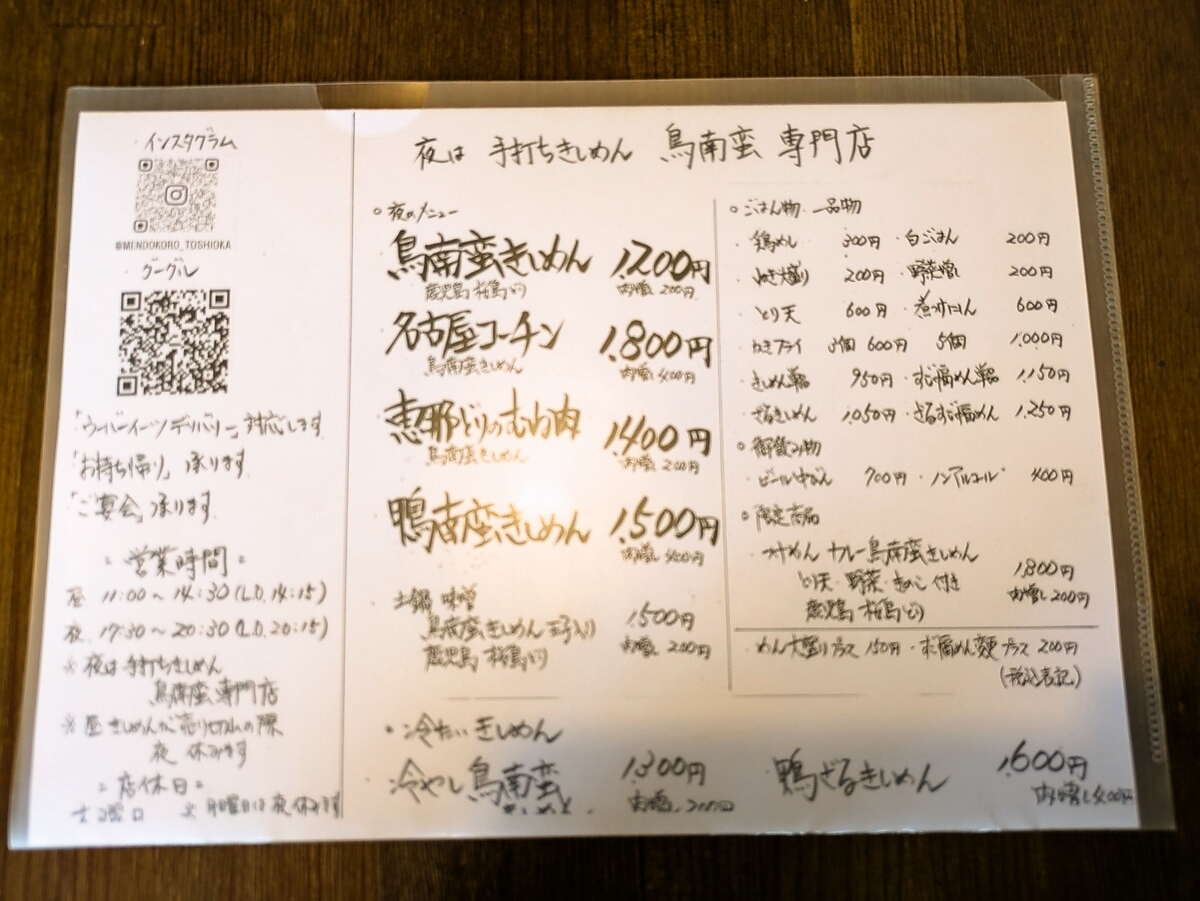 インスタグラム
@MENDOKORO_TOSHIOKA
グーグル
「ウーバーイーツデリバリー」対応します
「お持ち帰り」承ります
「ご宴会」承ります
営業時間
昼 11:00～14:30(L.O.14:15)
夜 17:30～20:30(L.O.20:15)
※夜は手打ちきしめん
鳥南蛮専門店
※昼きしめんが売り切れの際
夜 休みます
店休日
土曜日 ※月曜日は夜休みます
夜は 手打ちきしめん 鳥南蛮 専門店
夜のメニュー
鳥南蛮きしめん 1.200円
鹿児島 桜島どり 肉増し 200円
名古屋コーチン 1.800円
鳥南蛮きしめん 肉増し 400円
恵那どりのむね肉 1.400円
鳥南蛮きしめん 肉増し 200円
鴨南蛮きしめん 1.500円
肉増し 400円
土鍋 味噌
鳥南蛮きしめん 玉子入り 1.500円
鹿児島 桜島どり 肉増し 200円
ごはん物 一品物
鶏めし 300円 ・白ごはん 200円
ねぎ盛り 200円 ・野菜増し 200円
とり天 600円 ・煮付けにん 600円
かきフライ 3個 600円 5個 1.000円
きしめん単品 950円 ・ずぼらめん単品 1.150円
ざるきしめん 1.050円 ・ざるずぼらめん 1.250円
御飲み物
ビール中びん 700円 ・ノンアルコール 400円
限定商品
つけめん カレー鳥南蛮きしめん
とり天・野菜・きのこ付き 1.800円
鹿児島 桜島どり 肉増し 200円
めん大盛りプラス 150円
プラス 200円
(税込表記)
・冷たいきしめん
冷やし鳥南蛮 1.300円
肉増し 200円
鴨ざるきしめん 1.600円
肉増し 400円